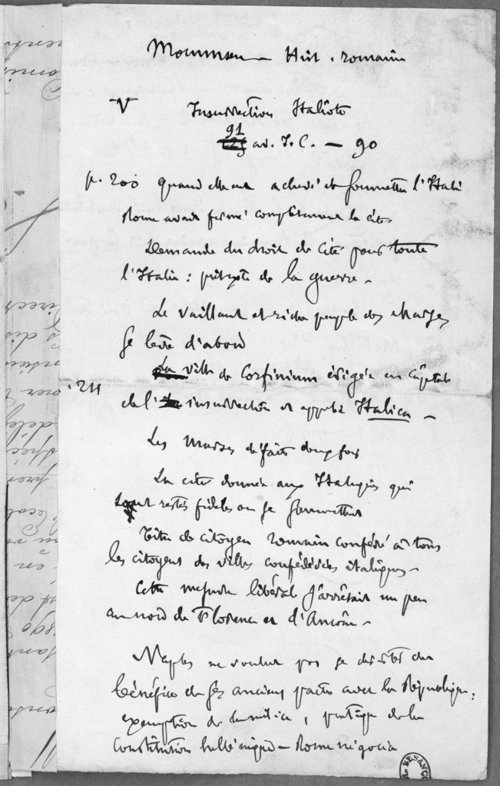 Mommsen — Hist. romaine
V Insurrection Italiote
91
av. J.C. — 90
p. 200 quand elle eut achevé de soumettre l'Itali
Rome avait fermé complètement la cité
Demande du droit de cité pour toute
l'Italie : prétexte de la guerre.
Le vaillant et riche peuple des Marses
se lève d'abord
La ville de Corfinium érigée en capitale
211 de l'insurrection et appelée Italica —
Les Marses défaits deux fois
La cité donnée aux Italiques qui
sont restés fidèles ou se soumettent
Titre de citoyen romain conféré à tous
les citoyens des villes confédérées italiques.
Cette mesure libérale s'arrêtait un peu
au nord de Florence et d'Ancône.
Naples ne voulut pas se désister du
bénéfice de ses anciens pactes avec la République :
exemption de la milice, pratique de la
constitution hellénique — Rome négocia